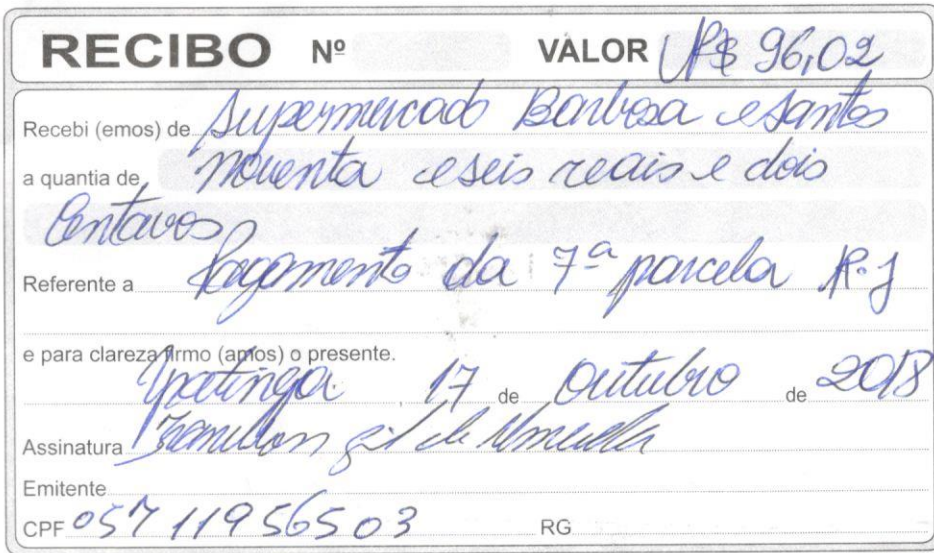 RECIBO Nº VALOR R$ 96,02
Recebi (emos) de Supermercado Barbosa e Santos
a quantia de Noventa e seis reais e dois
Centavos
Referente a Pagamento da 7ª parcela R.J
e para clareza firmo (amos) o presente.
Ipatinga, 17 de Outubro de 2018
Assinatura
Emitente
CPF 057 119 565 03 RG